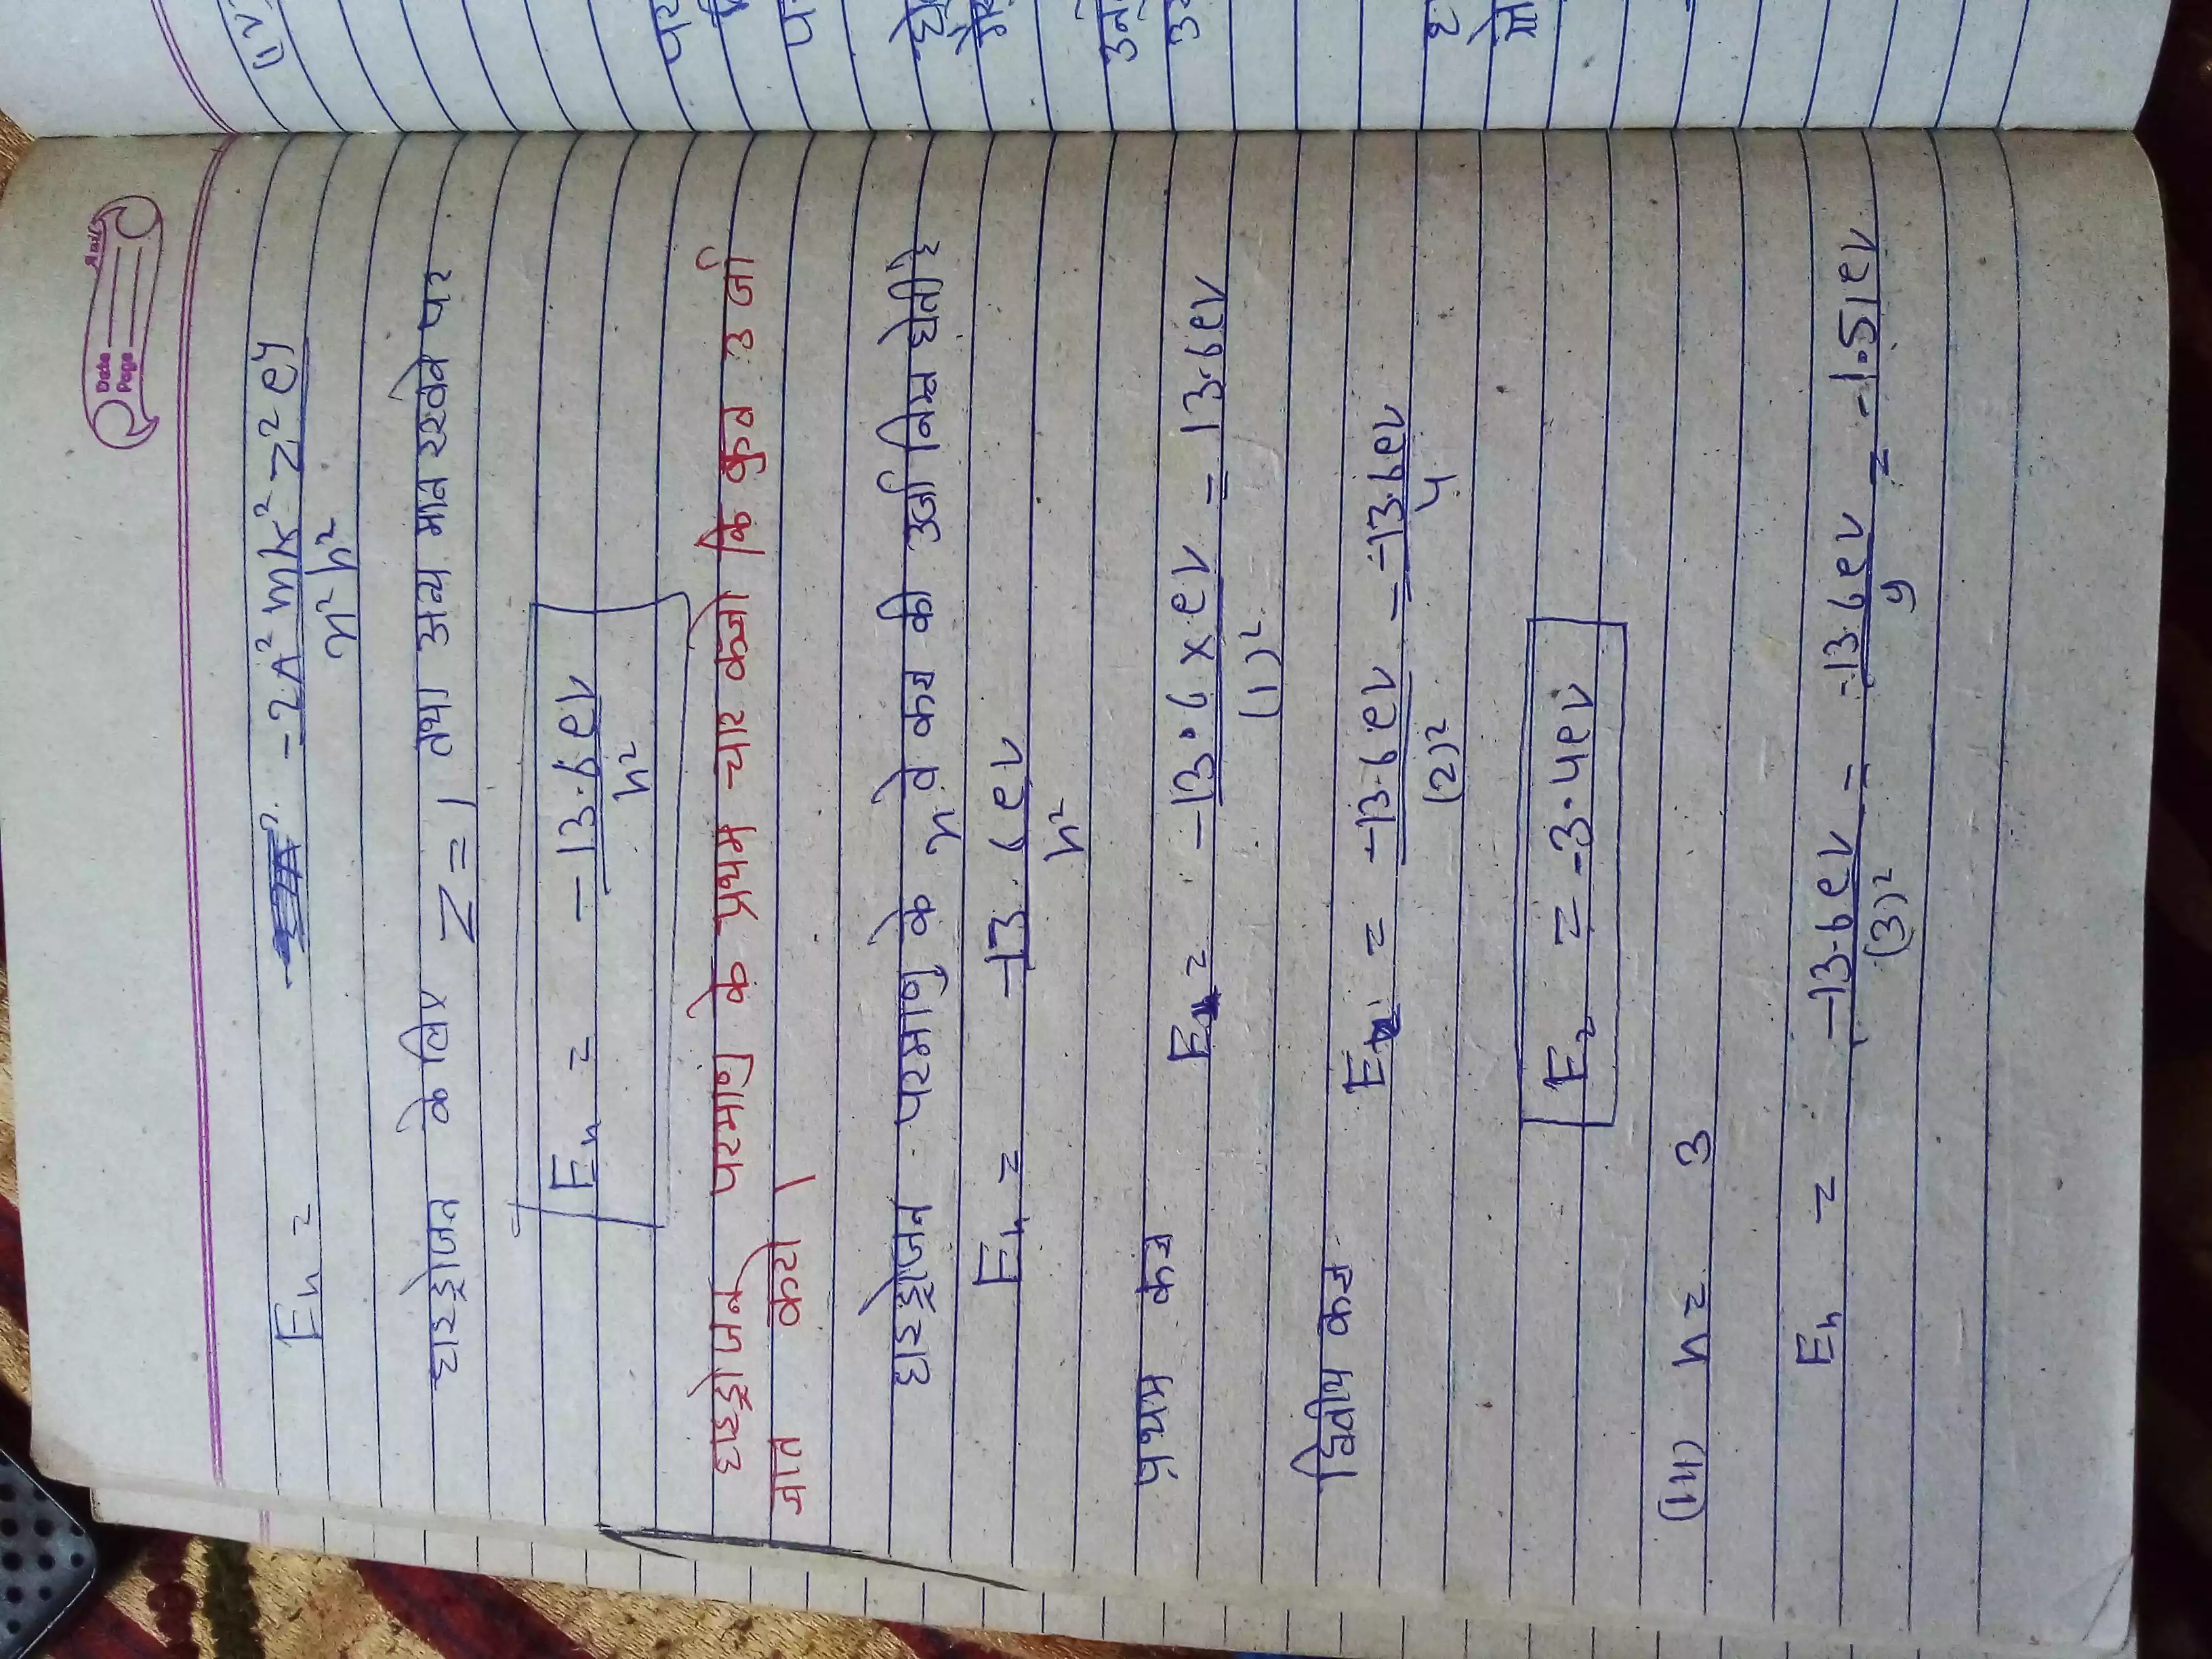 Date
Page
En = -2π² mk² z² e⁴
n² h²
हाइड्रोजन के लिए Z = 1 तथा अन्य मान रखने पर
En = -13.6ev
n²
हाइड्रोजन परमाणु के प्रथम चार कक्षो कि कुल उर्जा
ज्ञात करो।
हाइड्रोजन परमाणु के n वे कक्ष की उर्जा निम्न होती है
En = -13.6ev
n²
प्रथम कक्ष
E = -13.6 x ev = 13.6ev
(1)²
द्वितीय कक्ष
E = -13.6ev = -13.6ev
(2)² 4
E₂ = -3.4ev
(iii) n = 3
En = -13.6ev = -13.6ev = -1.51ev
(3)² 9
(iv)